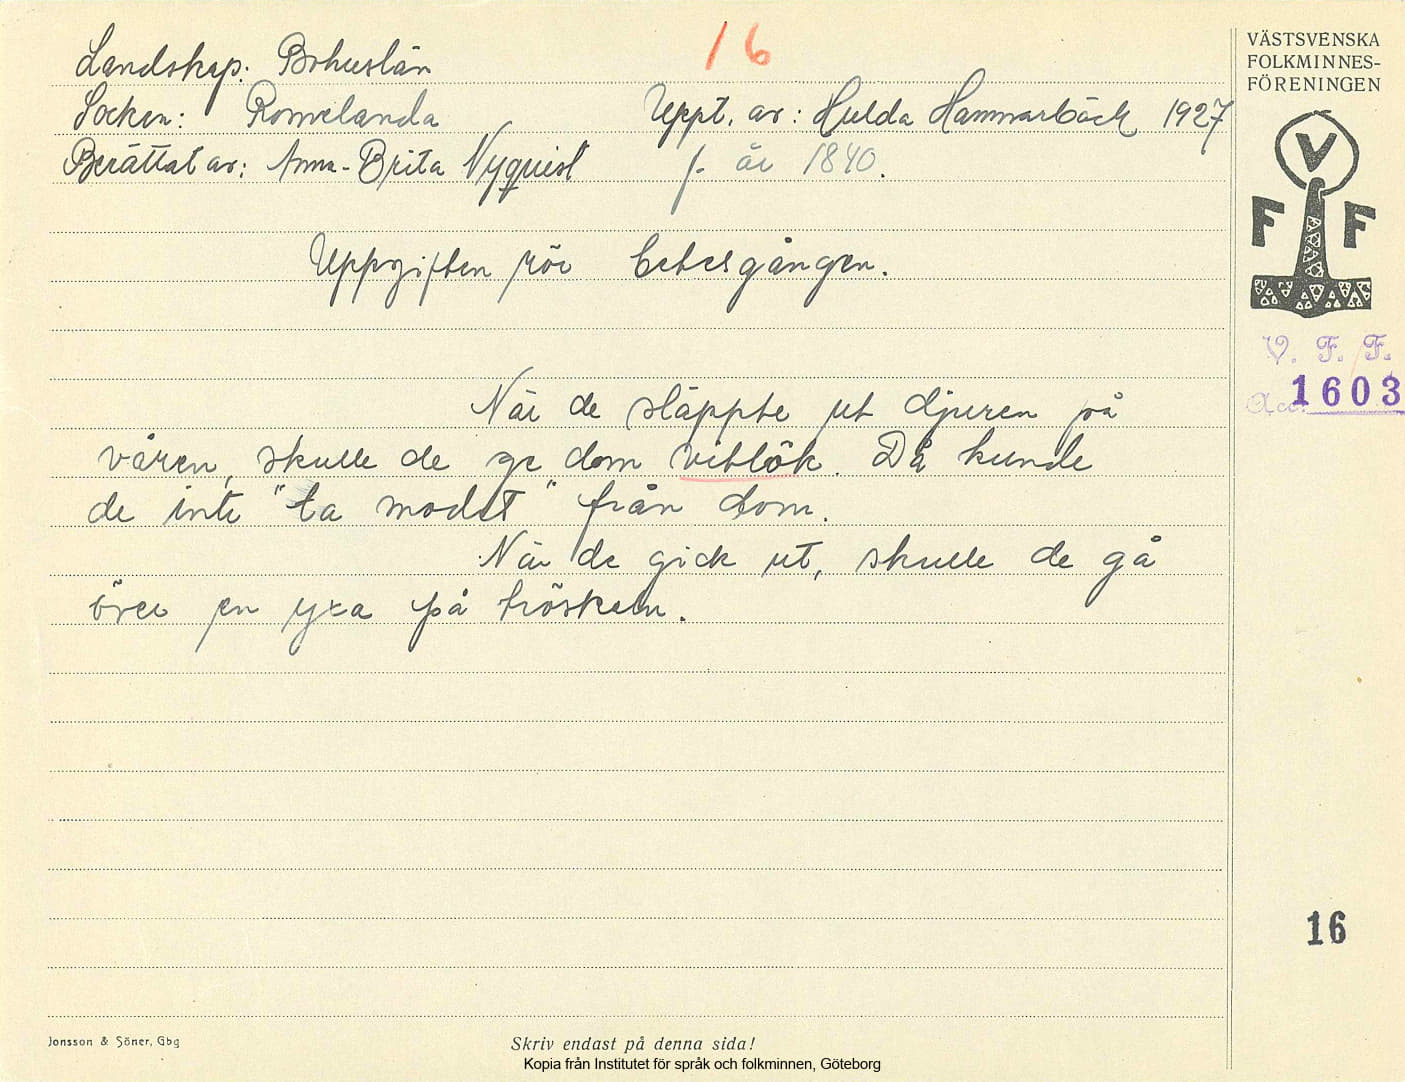 16
Landskap: Bohuslän
Socken: Romelanda Uppt. av: Hulda Hammarbäck 1927
Berättat av: Anna-Brita Nyquist f. år 1840.
Uppgiften rör betesgången.
När de släppte ut djuren på
våren, skulle de ge dem vitlök. Då kunde
de inte "ta modet" från dom.
När de gick ut, skulle de gå
över en yxa på tröskeln.
VÄSTSVENSKA
FOLKMINNES-
FÖRENINGEN
V
F F
V. F. F.
Acc. 1603
16
Jonsson & Söner, Gbg
Skriv endast på denna sida!
Kopia från Institutet för språk och folkminnen, Göteborg